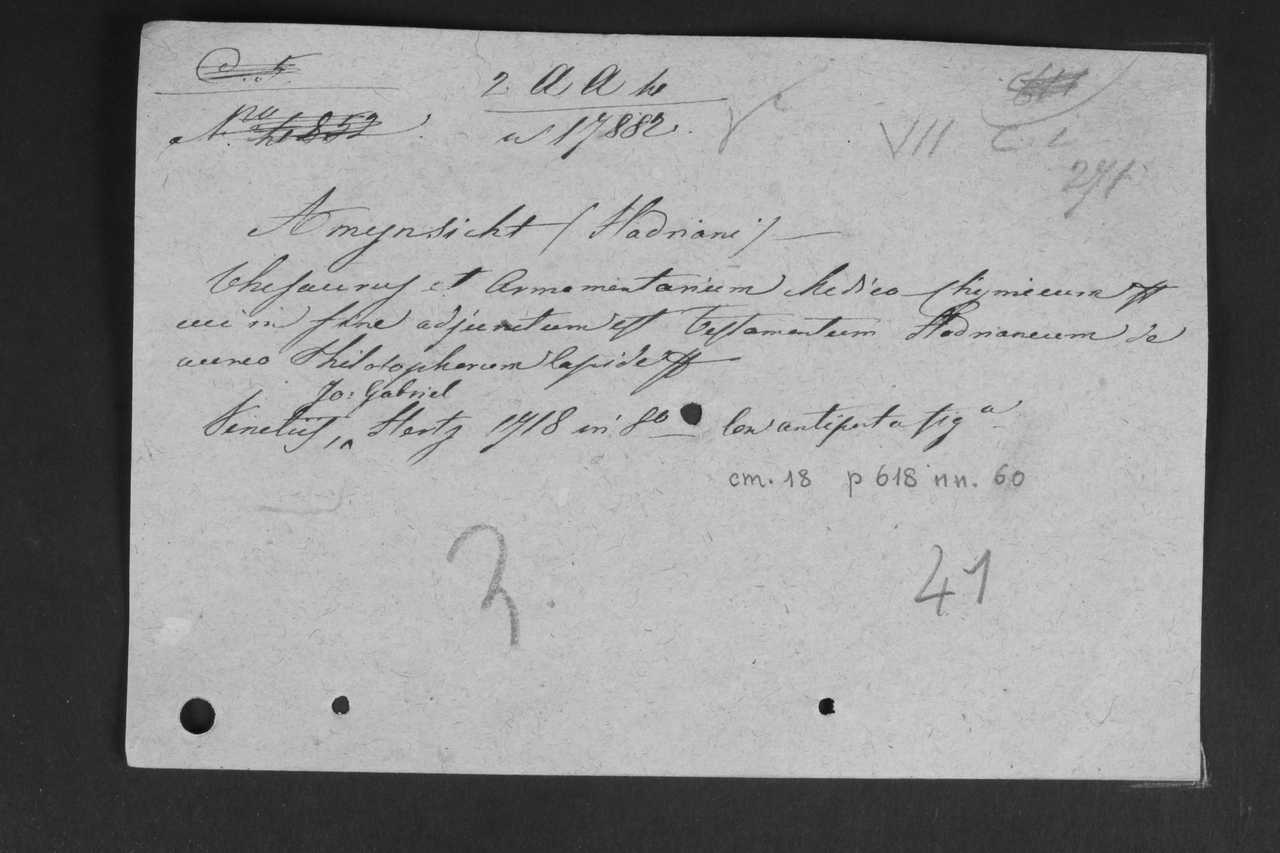 2 A A
17882.
VII C. L
271
Amynsicht (Hadriani) —
Thesaurus et Armamentarium Medico-Chymicum
cui in fine adjunctum est Testamentum Hadrianeum de
aureo Philosophorum lapide
Jo: Gabriel
Venetiis, Hertz 1718 in 8o Con antiporta figa
cm. 18 p 618 nn. 60
41